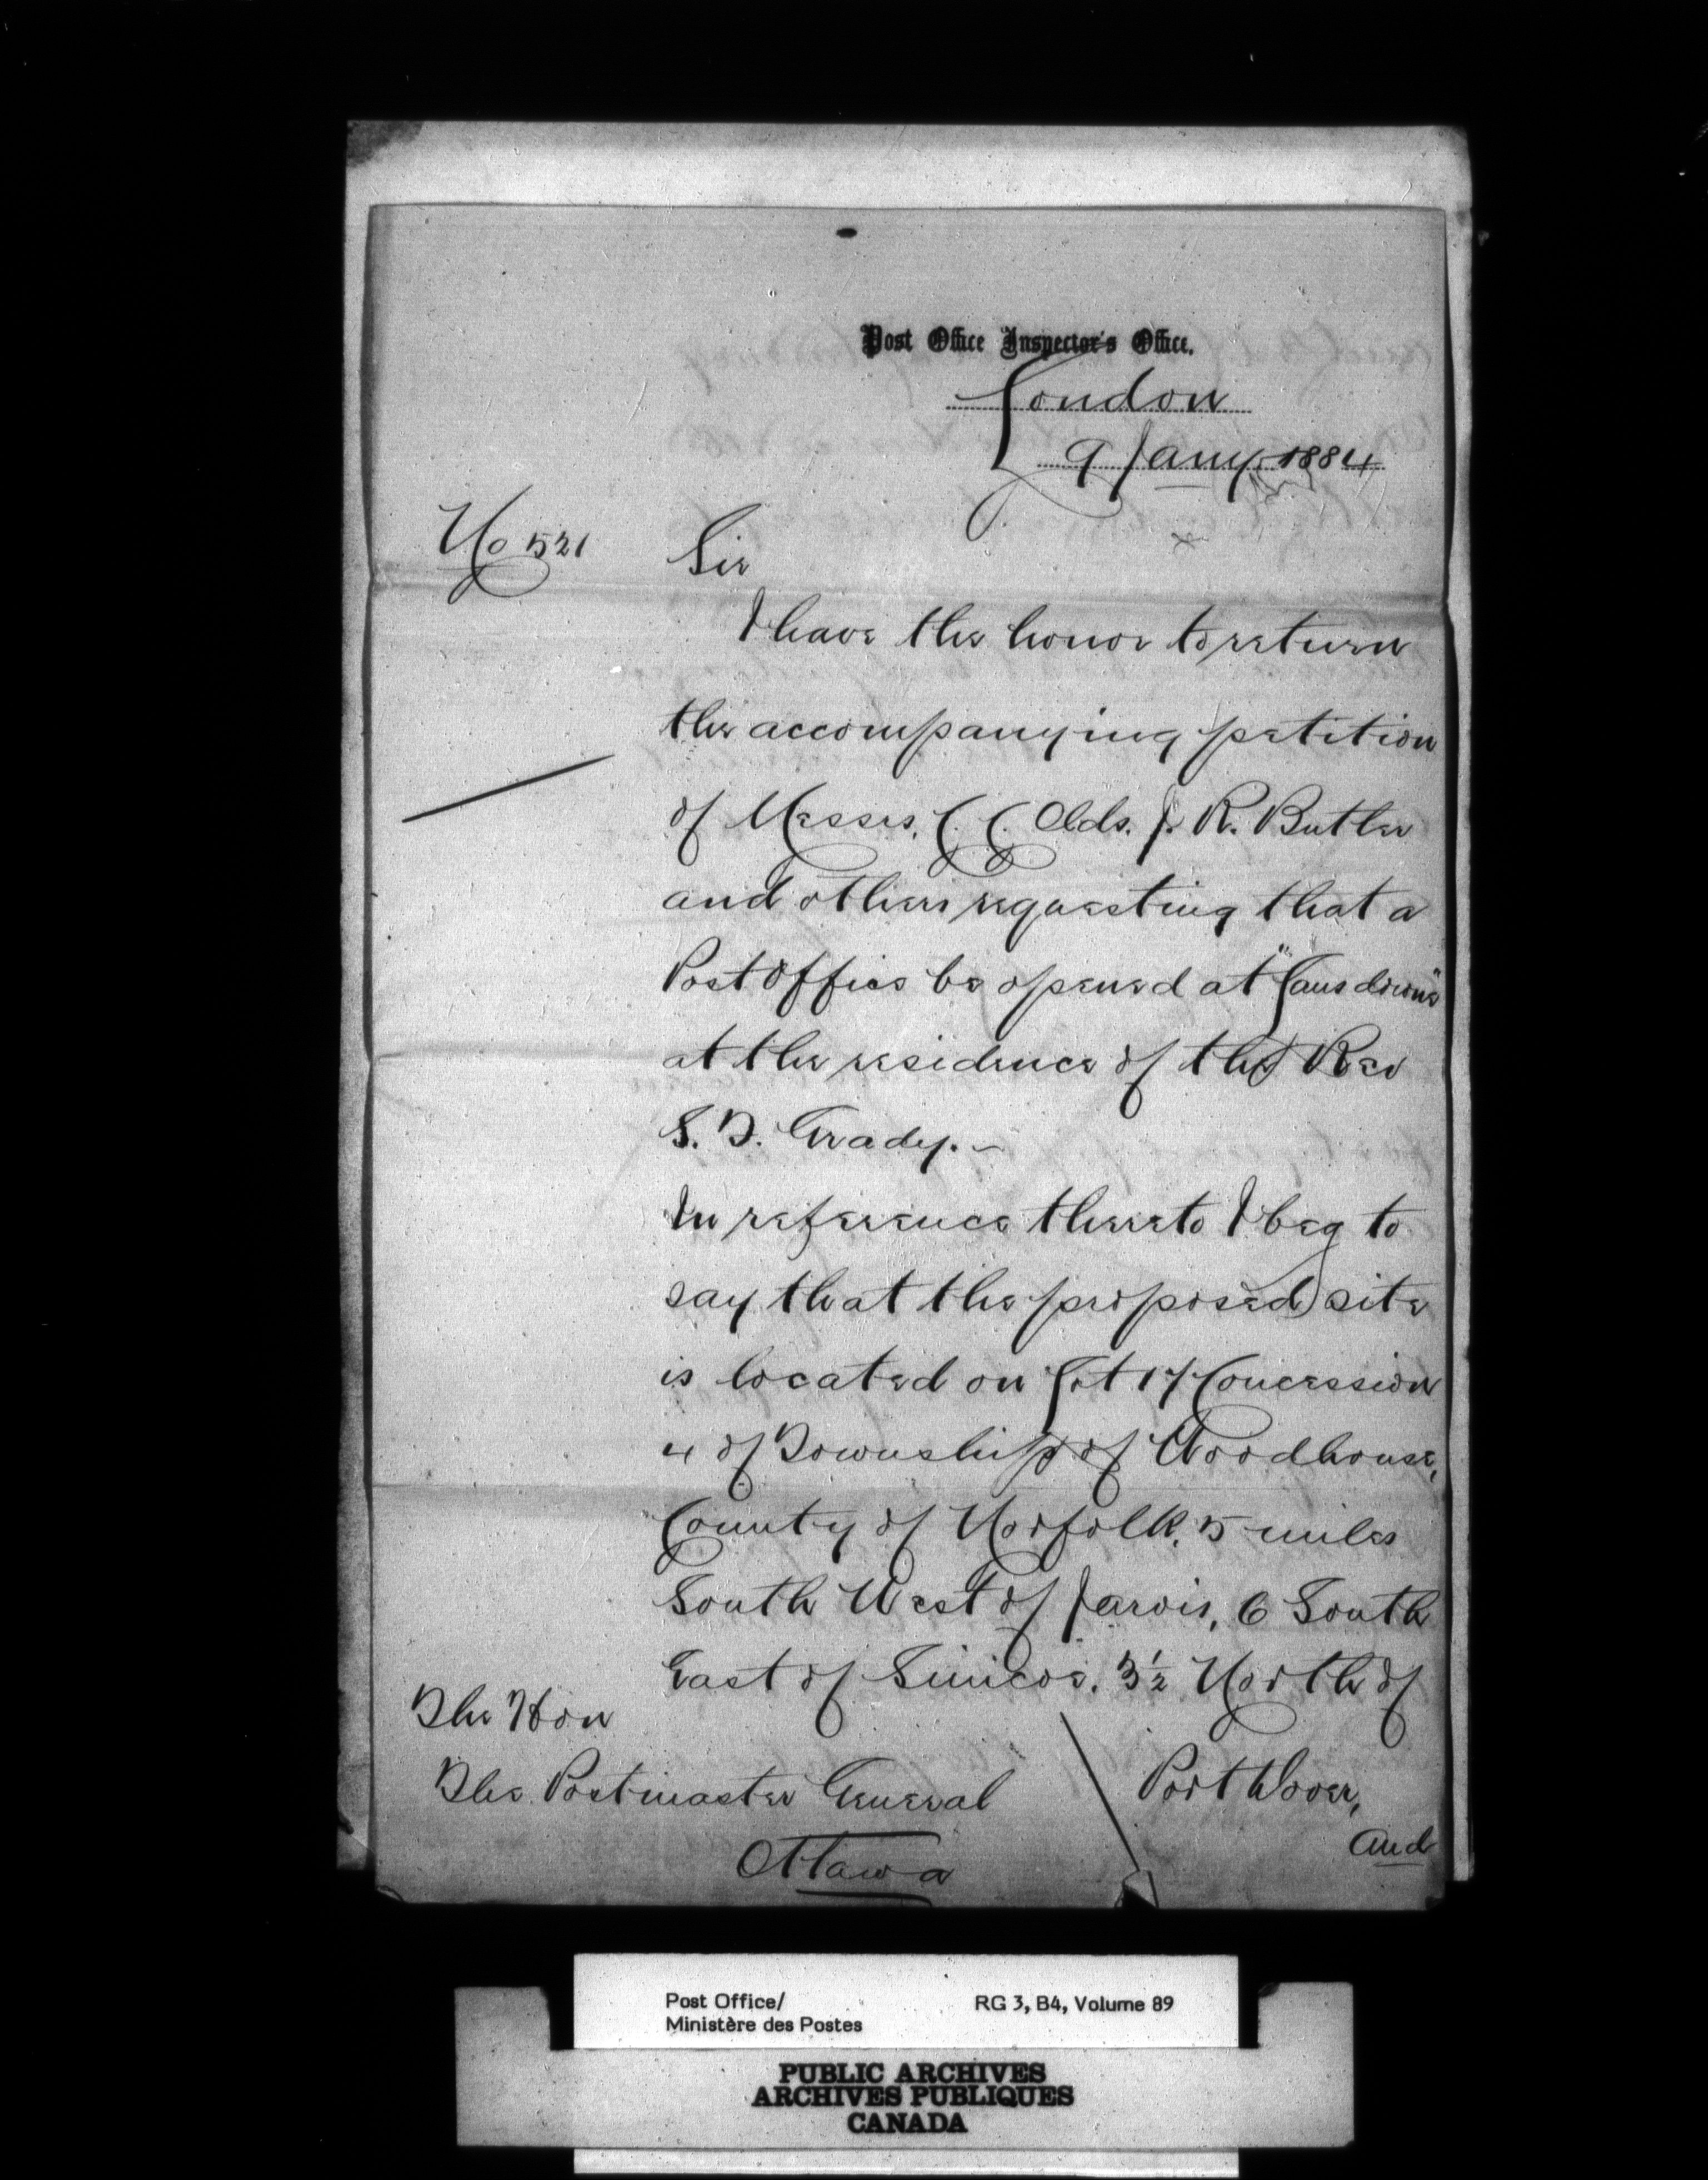 Post Office Inspector's Office.
London
9 Jany. 1884
No 521
Sir
I have the honor to return
the accompanying petition
of Messrs. C. C. Olds. J. R. Butler
and others requesting that a
Post Office be opened at "Lansdowne"
at the residence of the Rev
S. T. Grady. -
In reference thereto I beg to
say that the proposed site
is located on Lot 17 Concession
4 of Township of Woodhouse,
County of Norfolk, 5 miles
South West of Jarvis, 6 South
East of Simcoe, 3½ North of
Port Dover,
and
The Hon
The Postmaster General
Ottawa
Post Office/
Ministère des Postes
RG 3, B4, Volume 89
PUBLIC ARCHIVES
ARCHIVES PUBLIQUES
CANADA